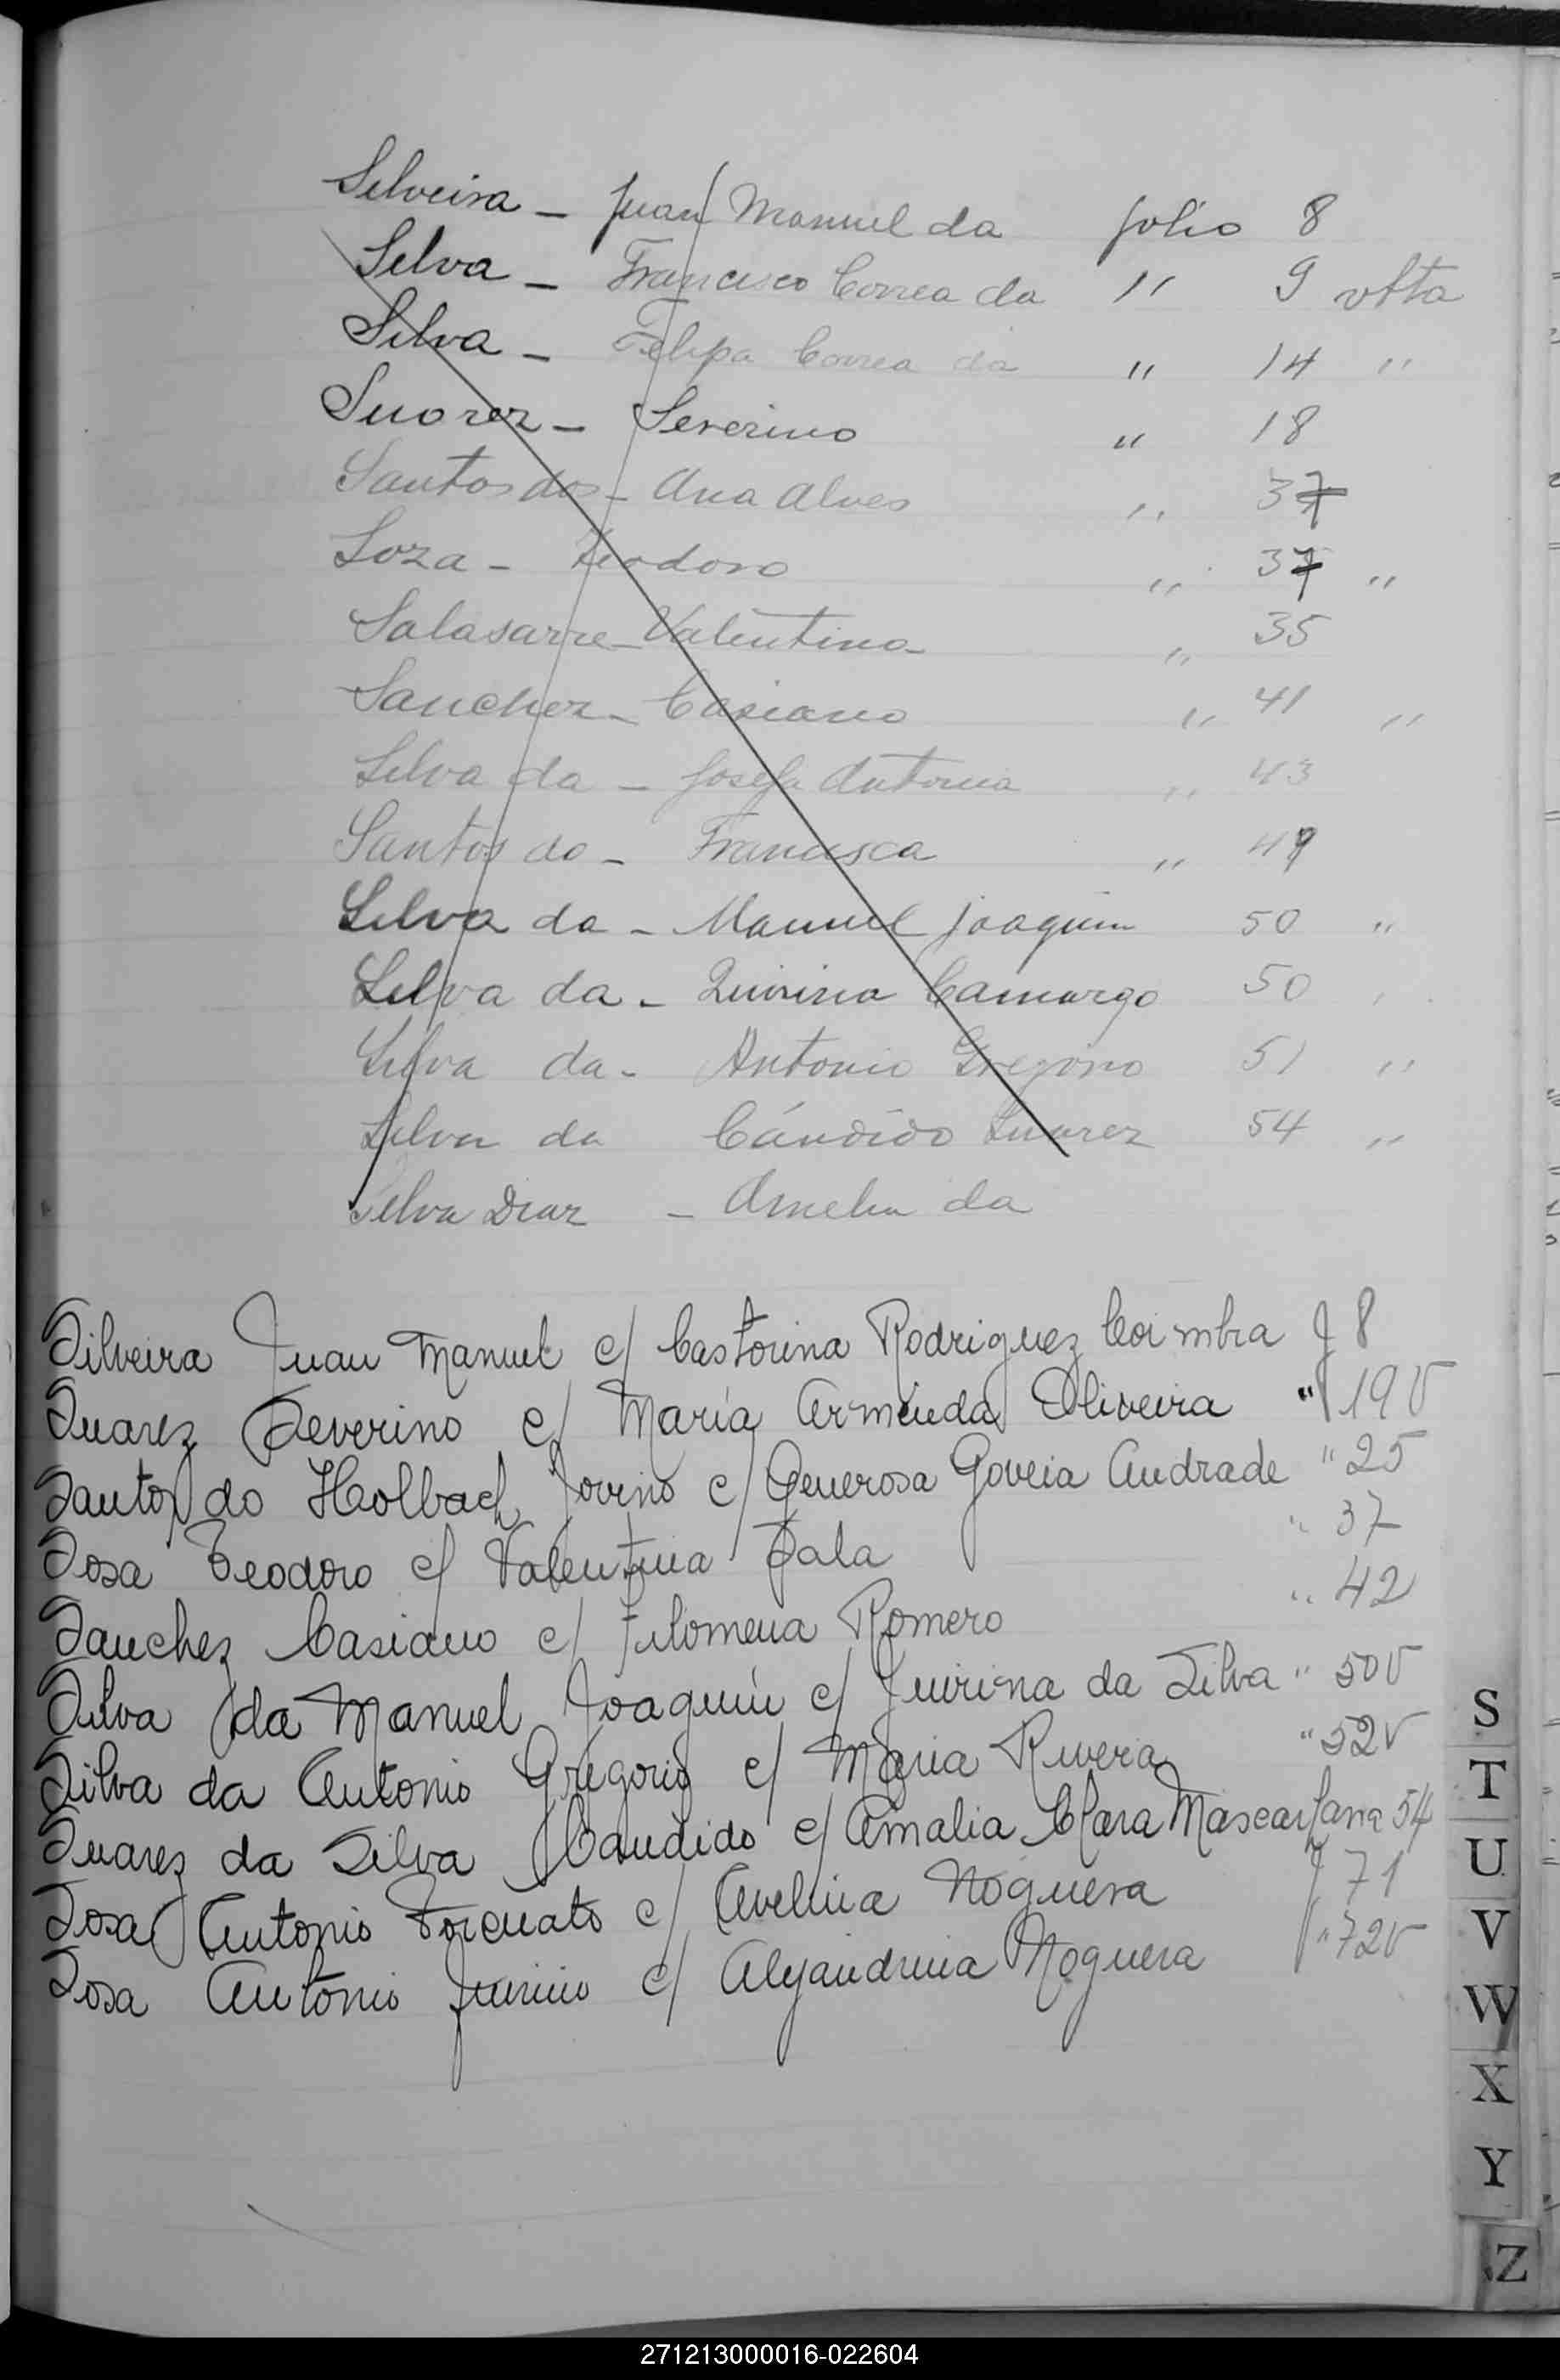 Silveira – Juan Manuel da folio 8
Silva – Francisco Correa da " 9 vlta
Silva – Felipa Correa da " 14 "
Suarez – Severino " 18
Santos dos – Ana Alves " 37
Soza – Teodoro " 37 "
Salasarre – Valentina " 35
Sanchez – Casiano " 41 "
Silva da – Josefa Antonia " 43
Santos do – Francisca " 49
Silva da – Manuel Joaquin 50 "
Silva da – Quirina Camargo 50
Silva da – Antonio Gregorio 51 "
Silva da Cándido Suarez 54 "
Silva Diaz – Amelia da
Silveira Juan Manuel c/ Castorina Rodriguez Coimbra f 8
Suarez Severino c/ María Arminda Oliveira " 19 v
Santos do Holbach Jovino c/ Generosa Goveia Andrade " 25
Sosa Teodoro c/ Valentina Sala " 37
Sanchez Casiano c/ Filomena Romero " 42
Silva da Manuel Joaquín c/ Quirina da Silva " 50 v
Silva da Antonio Gregorio c/ Maria Rivera " 52 v
Suarez da Silva Candido c/ Amalia Clara Mascarfana 54
Sosa Antonio Torcuato c/ Avelina Noguera f 71
Sosa Antonio Quirino c/ Alejandrina Noguera " 72 v
S
T
U
V
W
X
Y
Z
271213000016-022604